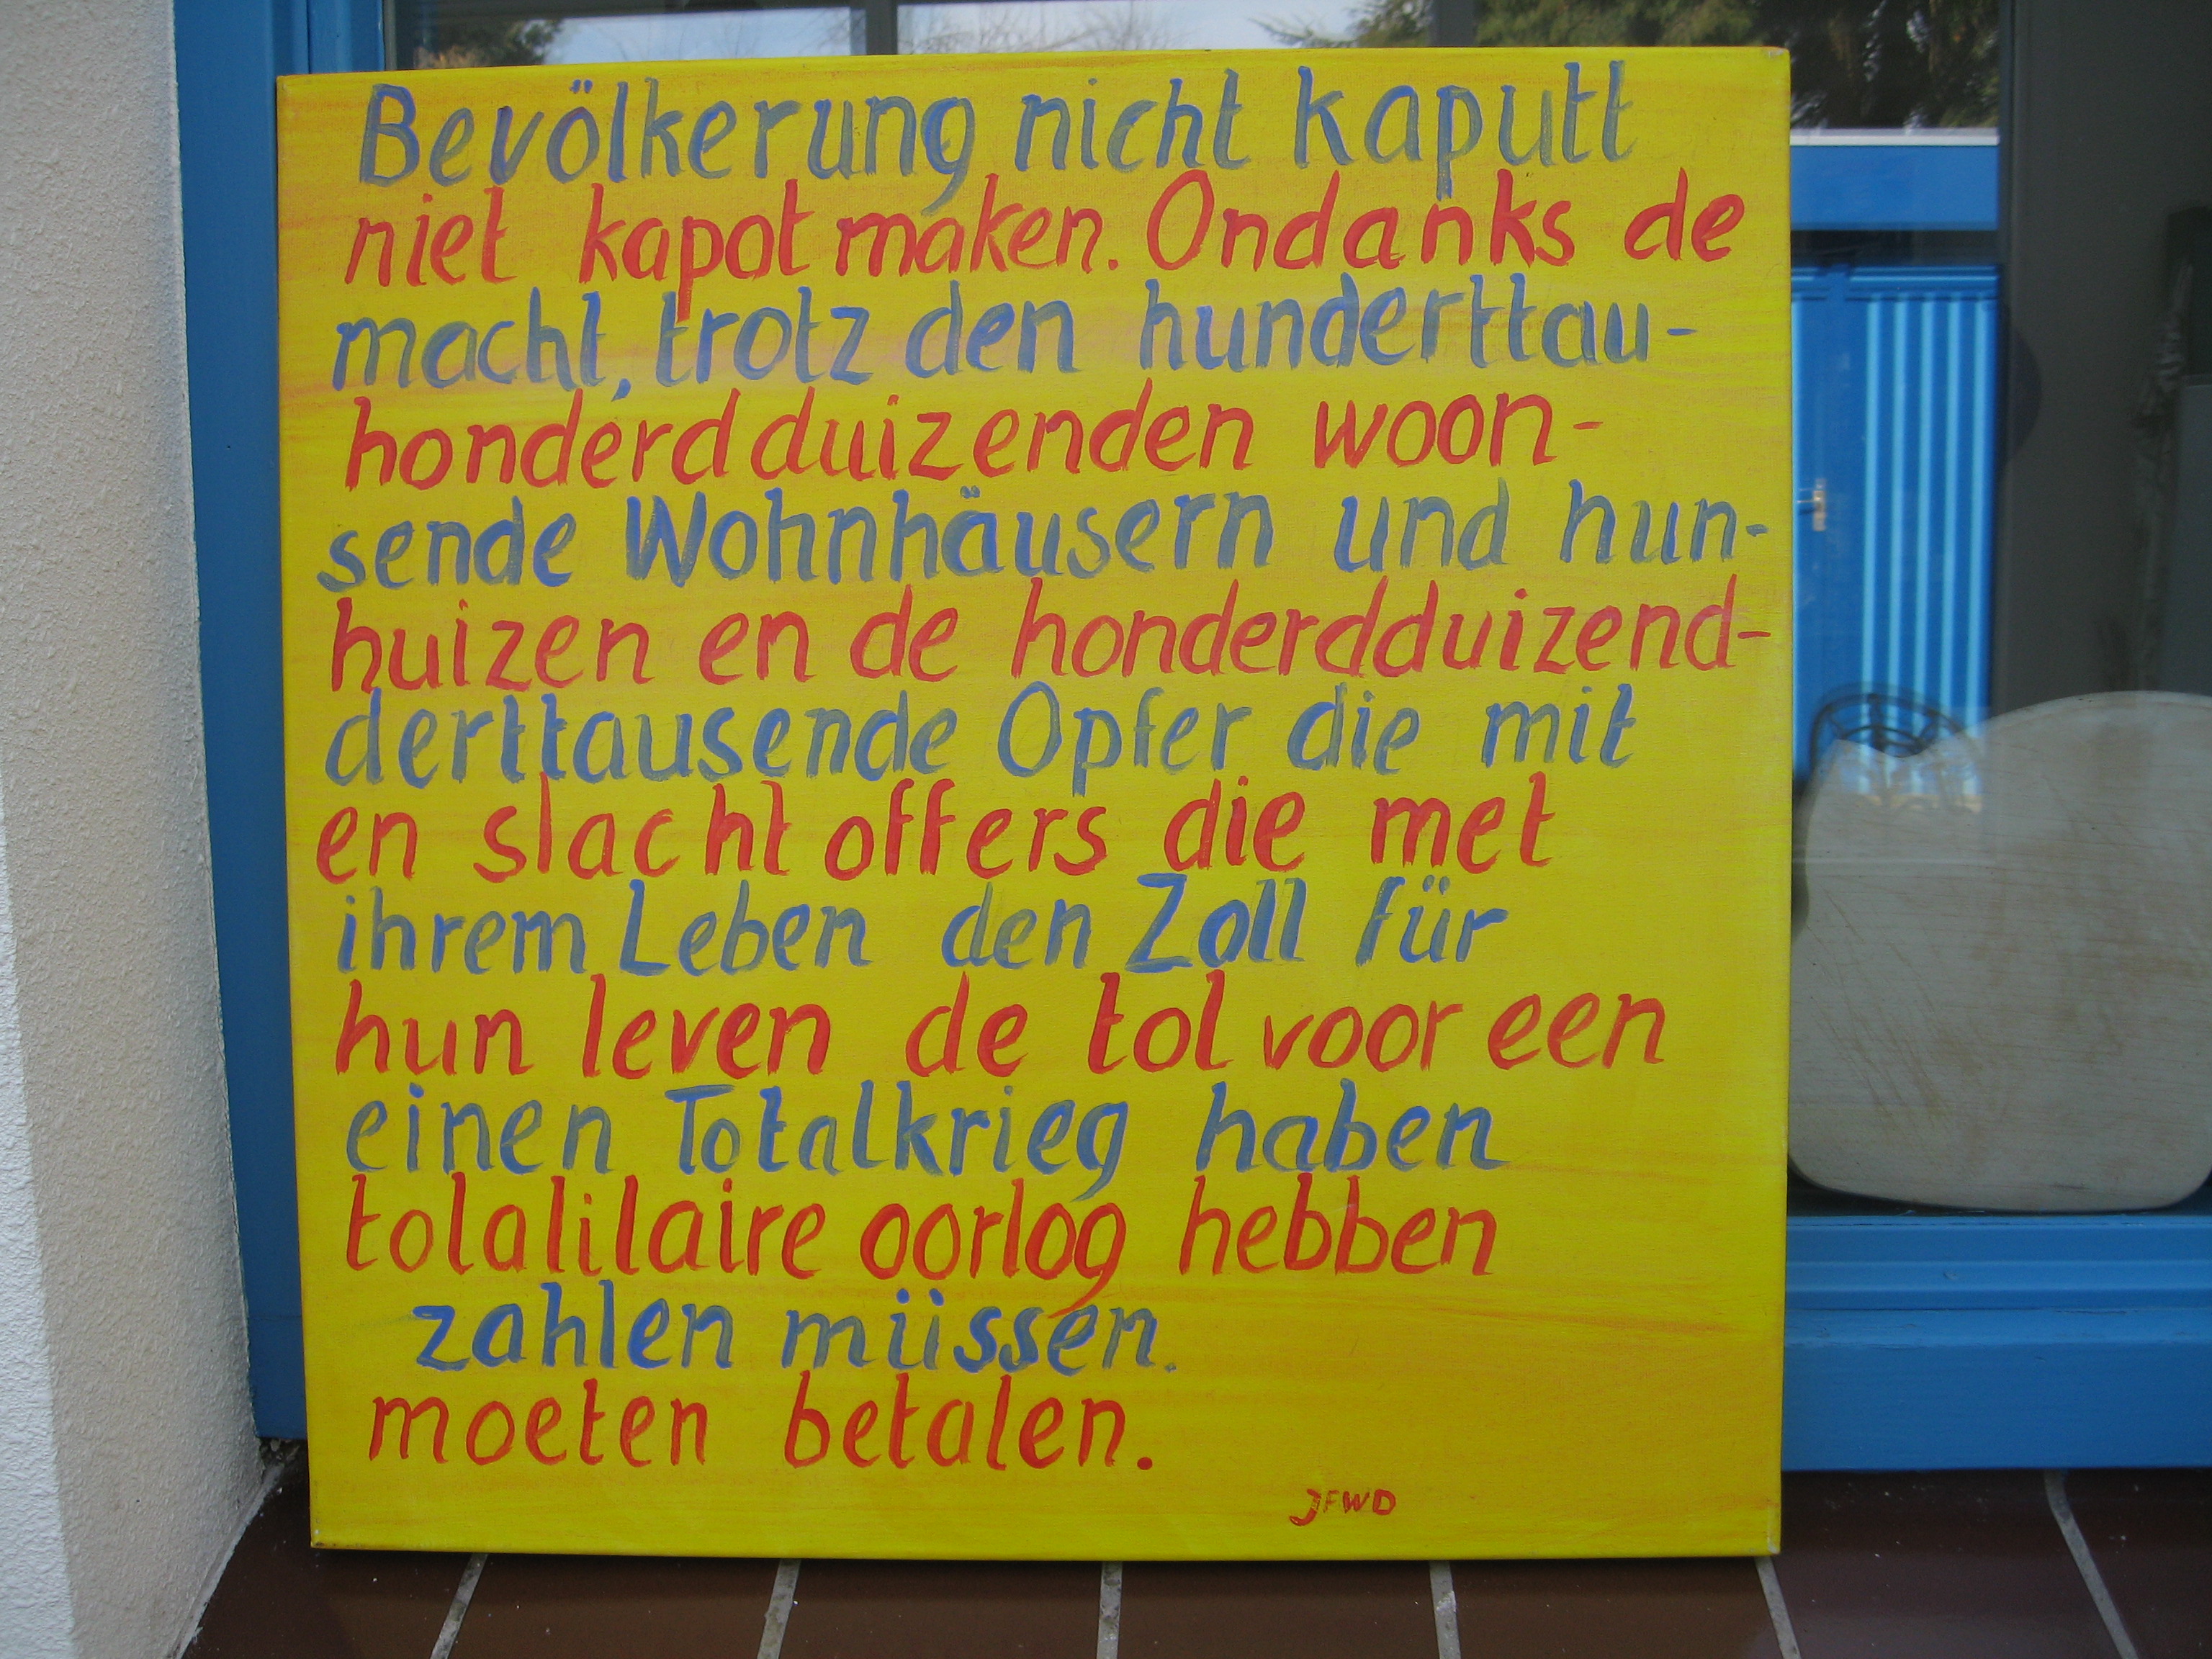 Bevölkerung nicht kaputt
niet kapot maken. Ondanks de
macht, trotz den hunderttau-
honderdduizenden woon-
sende Wohnhäusern und hun-
huizen en de honderdduizend-
derttausende Opfer die mit
en slachtoffers die met
ihrem Leben den Zoll für
hun leven de tol voor een
einen Totalkrieg haben
totalitaire oorlog hebben
zahlen müssen.
moeten betalen.
JFWD